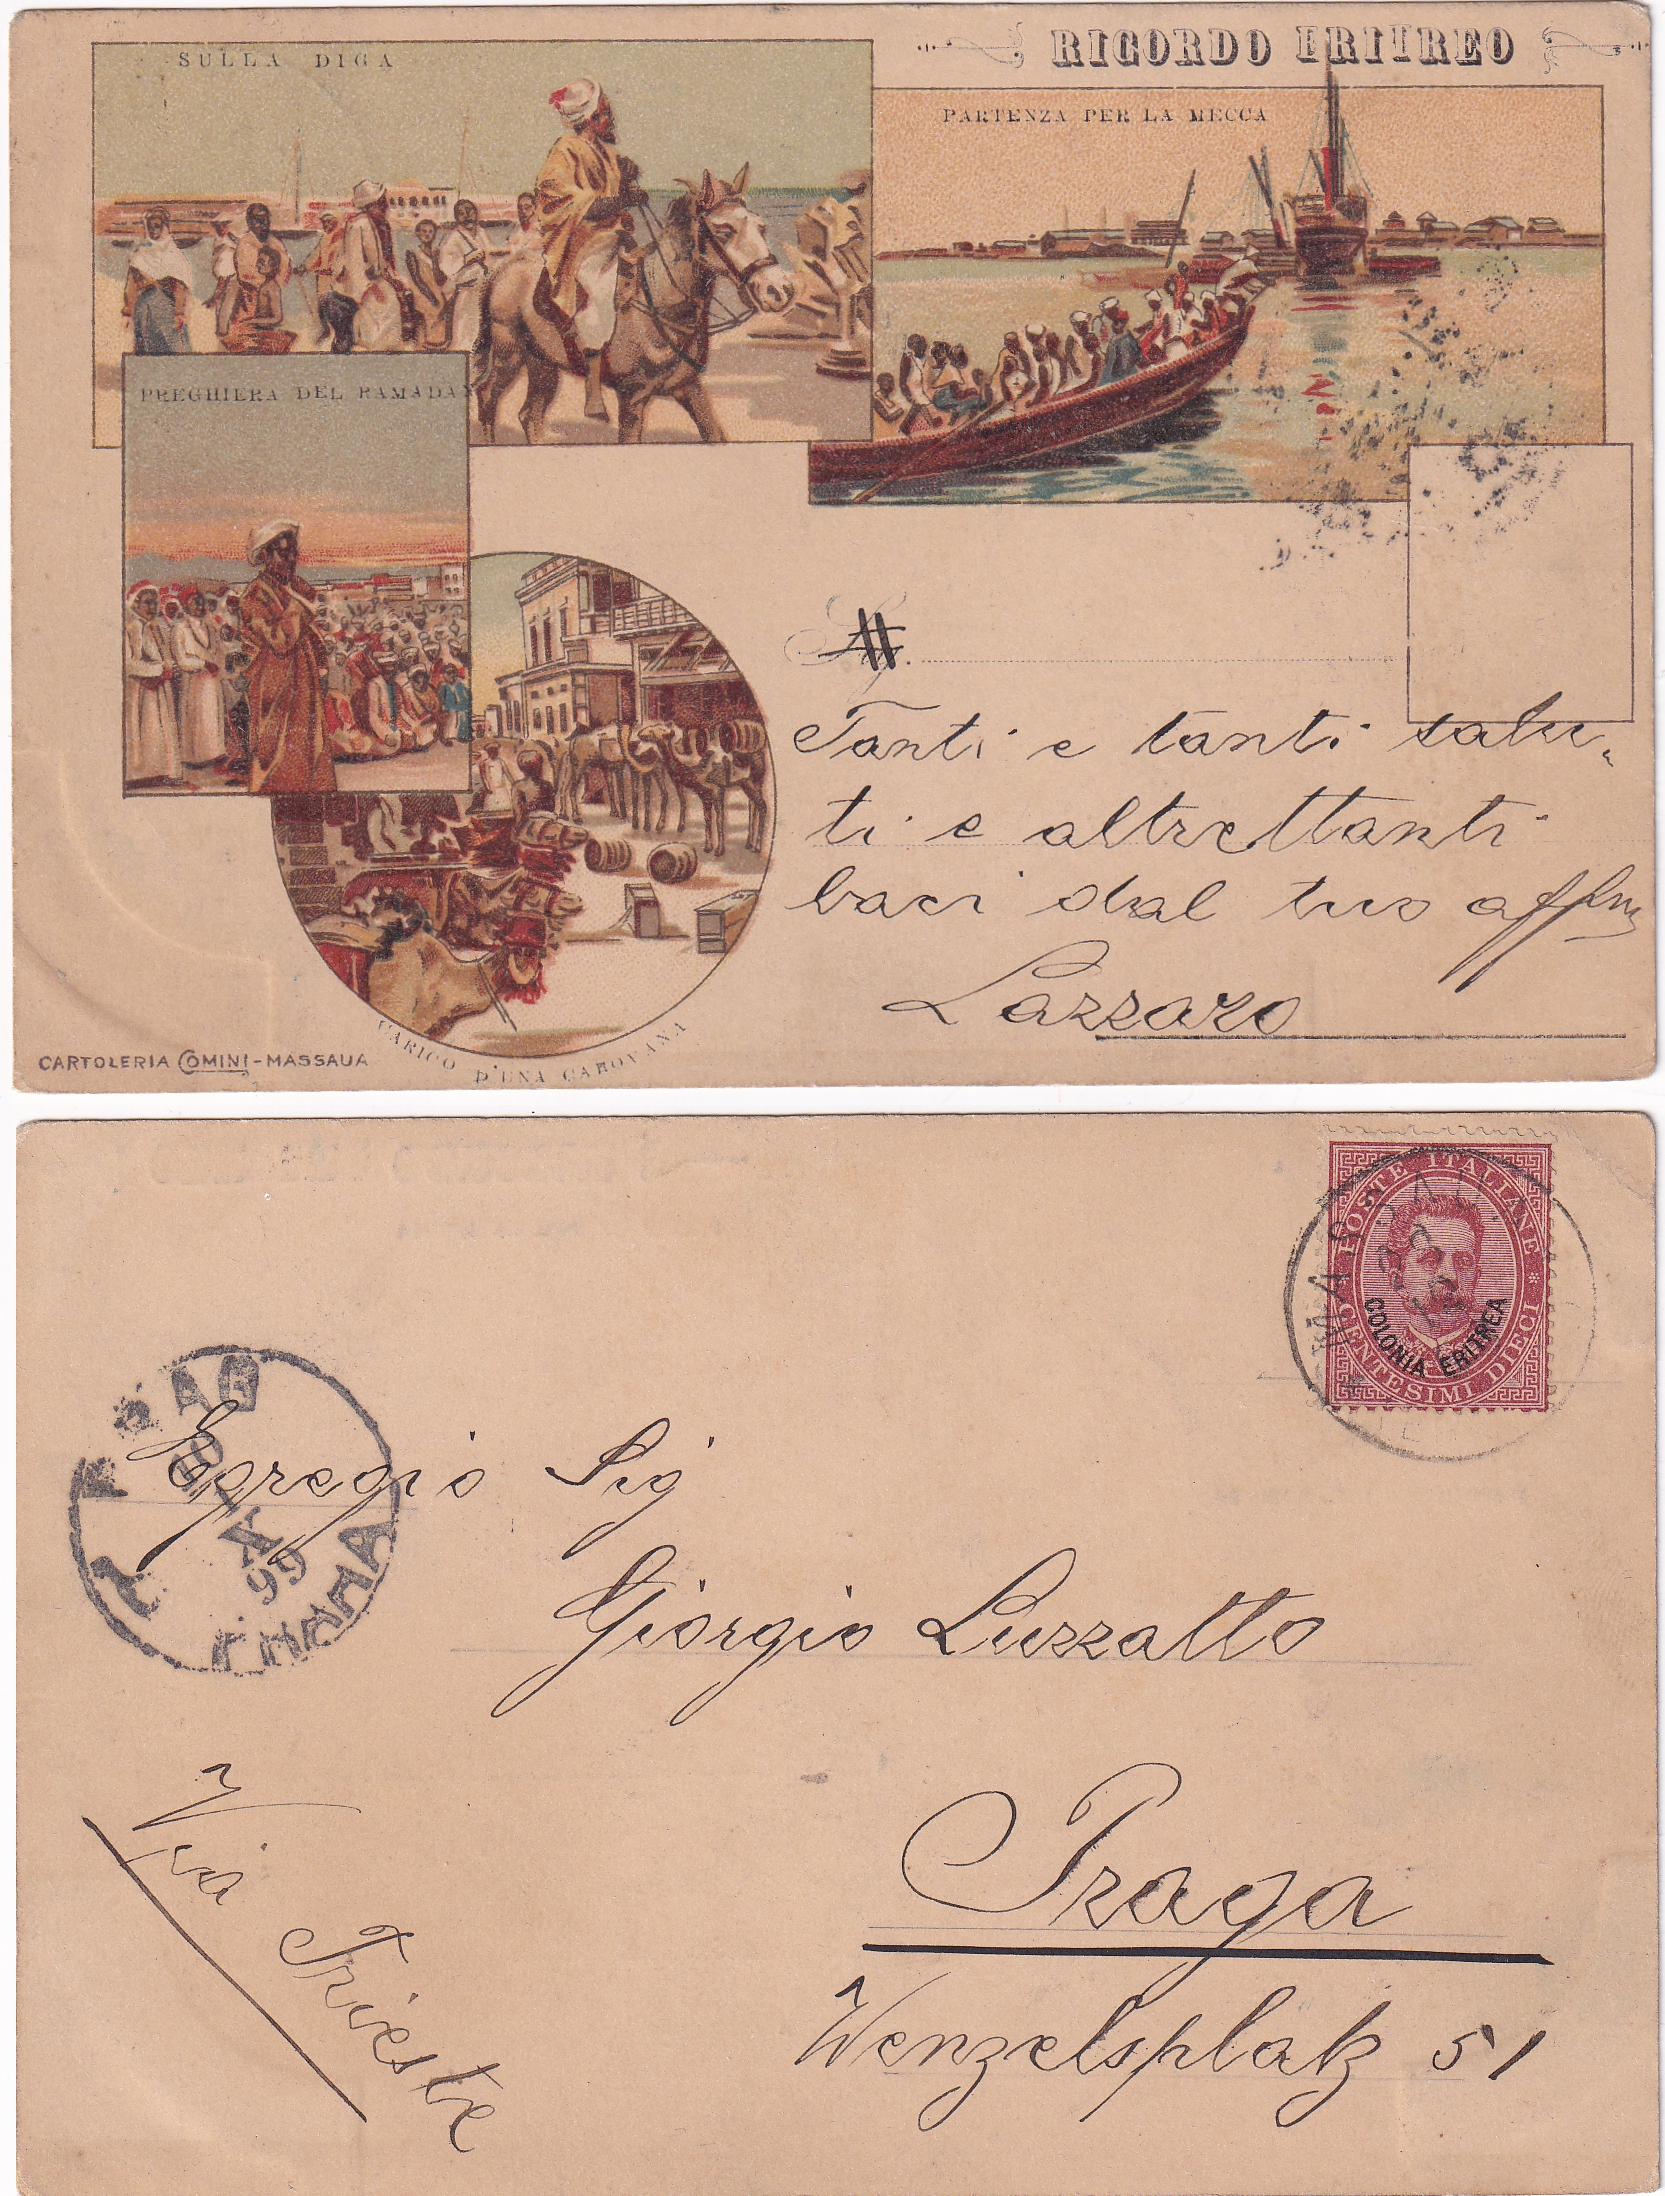 RICORDO ERITREO
SULLA DIGA
PARTENZA PER LA MECCA
PREGHIERA DEL RAMADAN
Tanti e tanti salu-
ti e altrettanti
baci dal tuo affmo
Lazzaro
CARICO D'UNA CAROVANA
CARTOLERIA COMINI-MASSAUA
POSTE ITALIANE
COLONIA ERITREA
CENTESIMI DIECI
MASSAUA
PRAG
X
99
PRAHA
Egregio Sig
Giorgio Luzzatto
Praga
Wenzelsplatz 51
Via Trieste